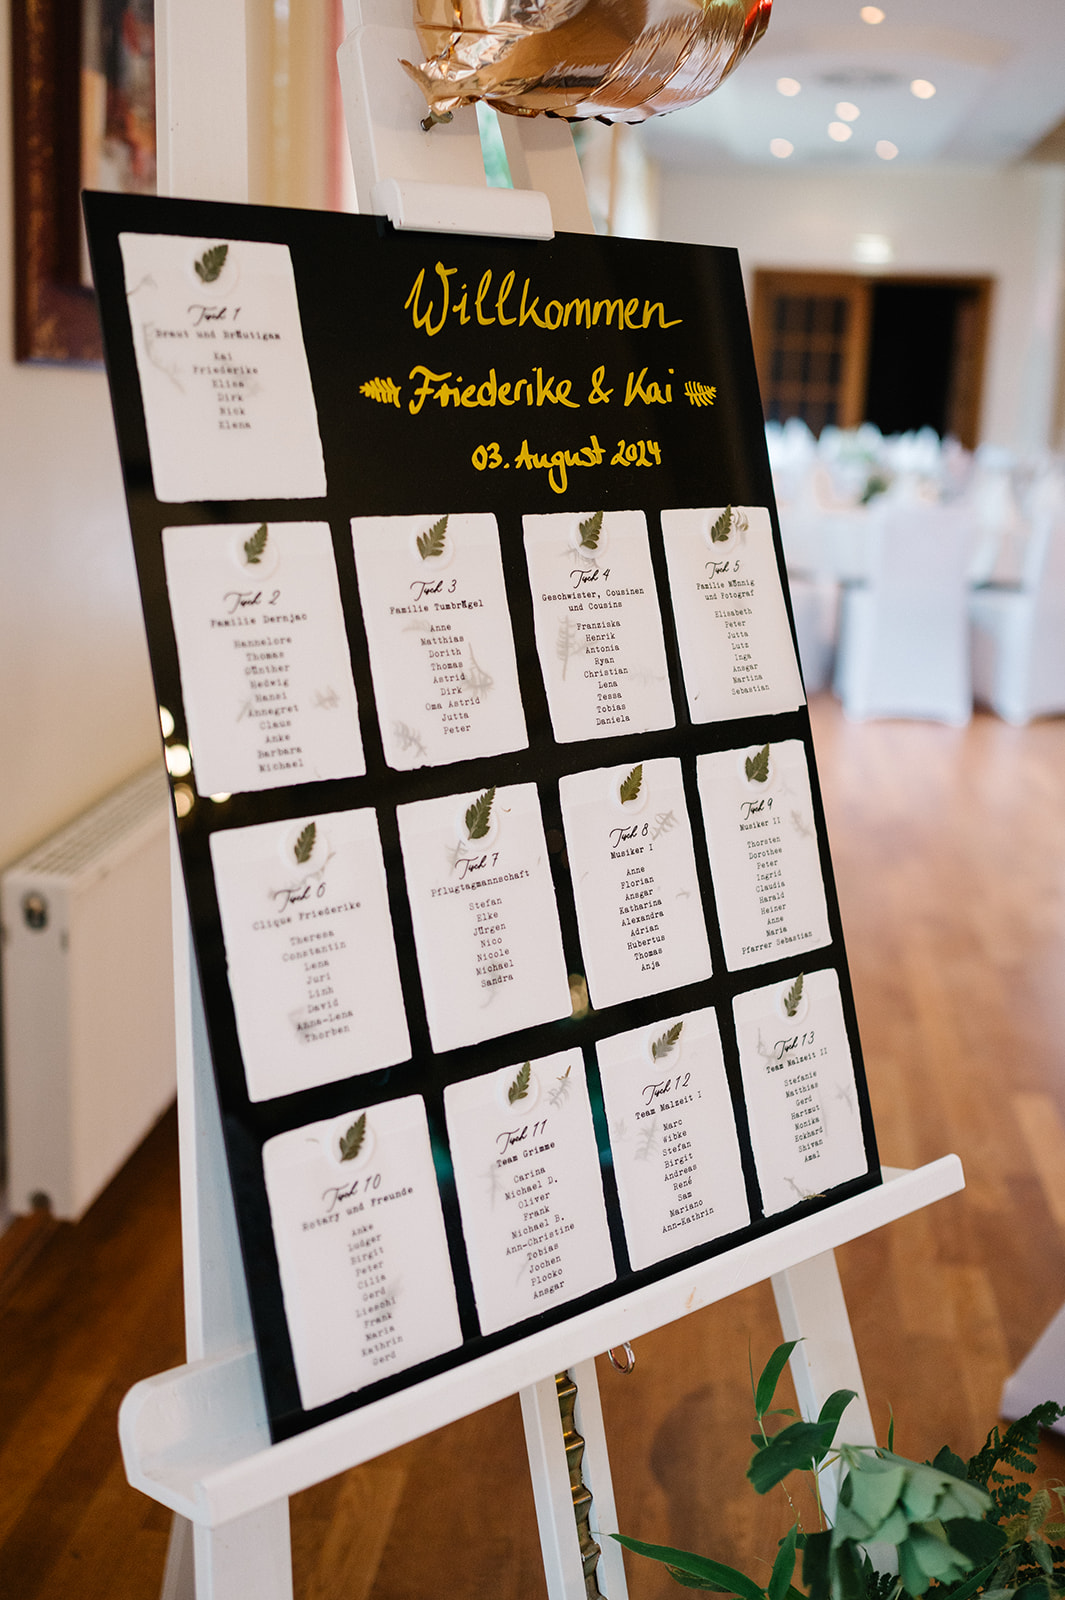 Tisch 1
Braut und Bräutigam
Kai
Friederike
Elisa
Dirk
Nick
Elena
Willkommen
Friederike & Kai
03. August 2024
Tisch 2
Familie Dernjac
Hannelore
Thomas
Günther
Hedwig
Hansi
Annegret
Claus
Anke
Barbara
Michael
Tisch 3
Familie Tumbrägel
Anne
Matthias
Dorith
Thomas
Astrid
Dirk
Oma Astrid
Jutta
Peter
Tisch 4
Geschwister, Cousinen
und Cousins
Franziska
Henrik
Antonia
Ryan
Christian
Lena
Tessa
Tobias
Daniela
Tisch 5
Familie Mönnig
und Fotograf
Elisabeth
Peter
Jutta
Lutz
Inga
Ansgar
Martina
Sebastian
Tisch 6
Clique Friederike
Theresa
Constantin
Lena
Juri
Linh
David
Anna-Lena
Thorben
Tisch 7
Pflugtagmannschaft
Stefan
Elke
Jürgen
Nico
Nicole
Michael
Sandra
Tisch 8
Musiker I
Anne
Florian
Ansgar
Katharina
Alexandra
Adrian
Hubertus
Thomas
Anja
Tisch 9
Musiker II
Thorsten
Dorothee
Peter
Ingrid
Claudia
Harald
Heiner
Anne
Maria
Pfarrer Sebastian
Tisch 10
Rotary und Freunde
Anke
Ludger
Birgit
Peter
Cilia
Gerd
Lieschi
Frank
Maria
Kathrin
Gerd
Tisch 11
Team Grimme
Carina
Michael D.
Oliver
Frank
Michael B.
Ann-Christine
Tobias
Jochen
Plocko
Ansgar
Tisch 12
Team Malzeit I
Marc
Wibke
Stefan
Birgit
Andreas
René
Sam
Mariano
Ann-Kathrin
Tisch 13
Team Malzeit II
Stefanie
Matthias
Gerd
Hartmut
Monika
Eckhard
Shivan
Amal